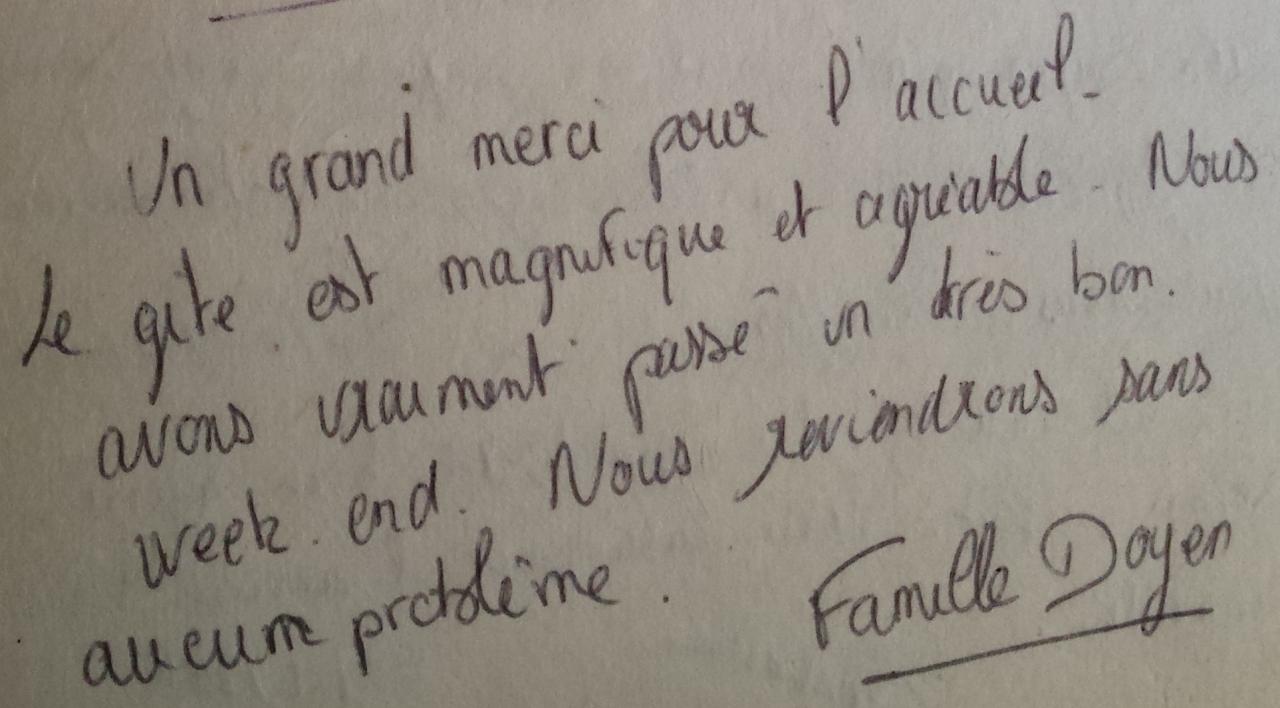 Un grand merci pour l'accueil.
Le gite est magnifique et agréable. Nous
avons vraiment passé un très bon.
week.end. Nous reviendrons sans
aucum problème.
Famille Doyen